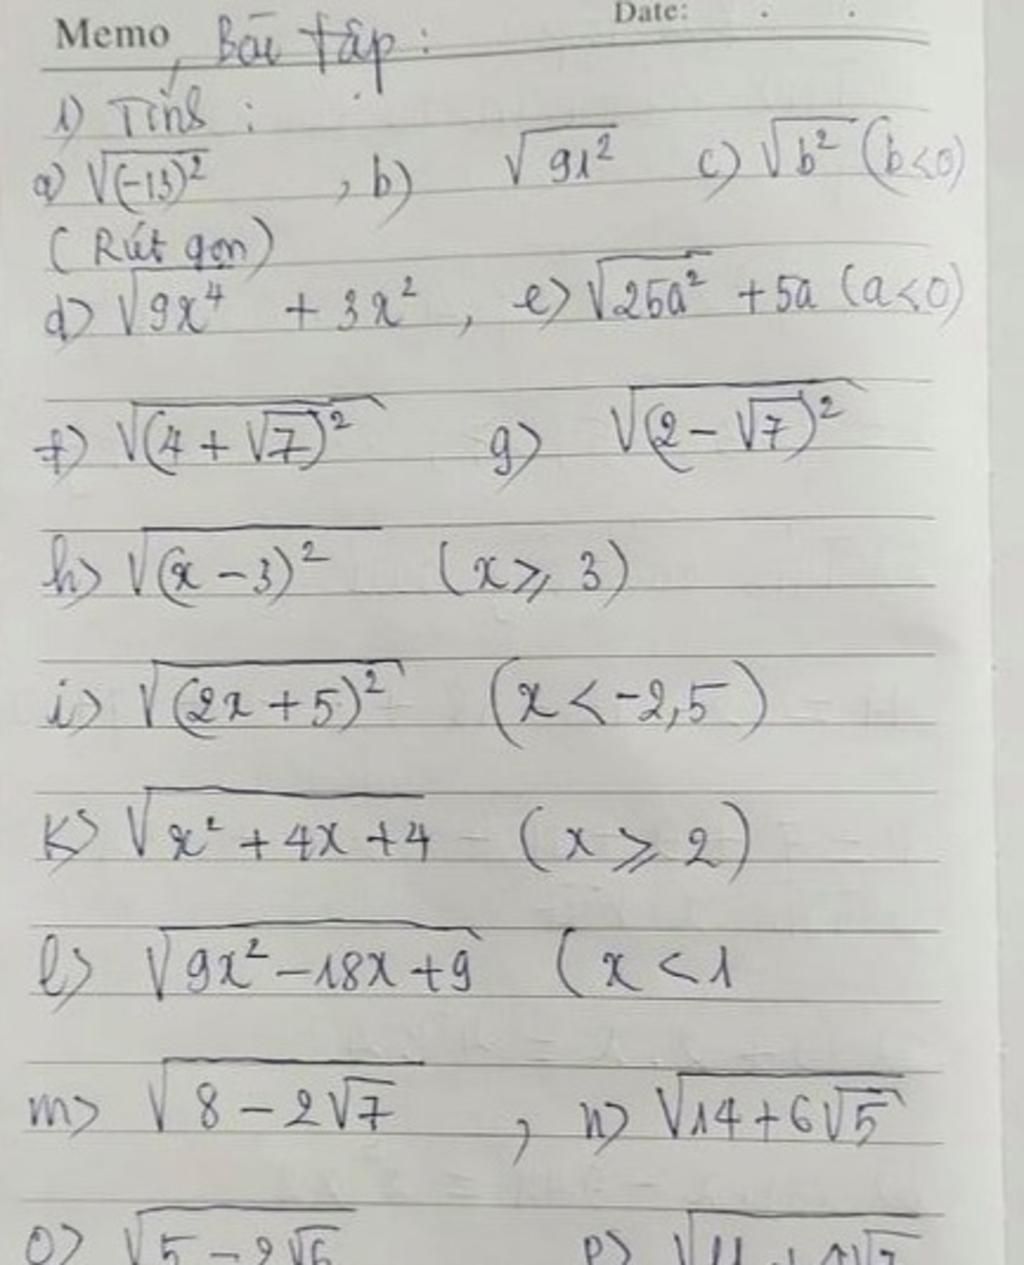 Memo Bài tập : Date: . .
1) Tính :
a) √(-13)² , b) √91² c) √b² (b<0)
(Rút gọn)
d) √9x⁴ + 3x² , e) √25a² + 5a (a<0)
f) √(4 + √7)² g) √(2 - √7)²
h) √(x - 3)² (x ⩾ 3)
i) √(2x + 5)² (x < -2,5)
k) √x² + 4x + 4 (x ⩾ 2)
l) √9x² - 18x + 9 (x < 1
m) √8 - 2√7 , n) √14 + 6√5
o) √5 - 2√6 p) √11 + 4√7